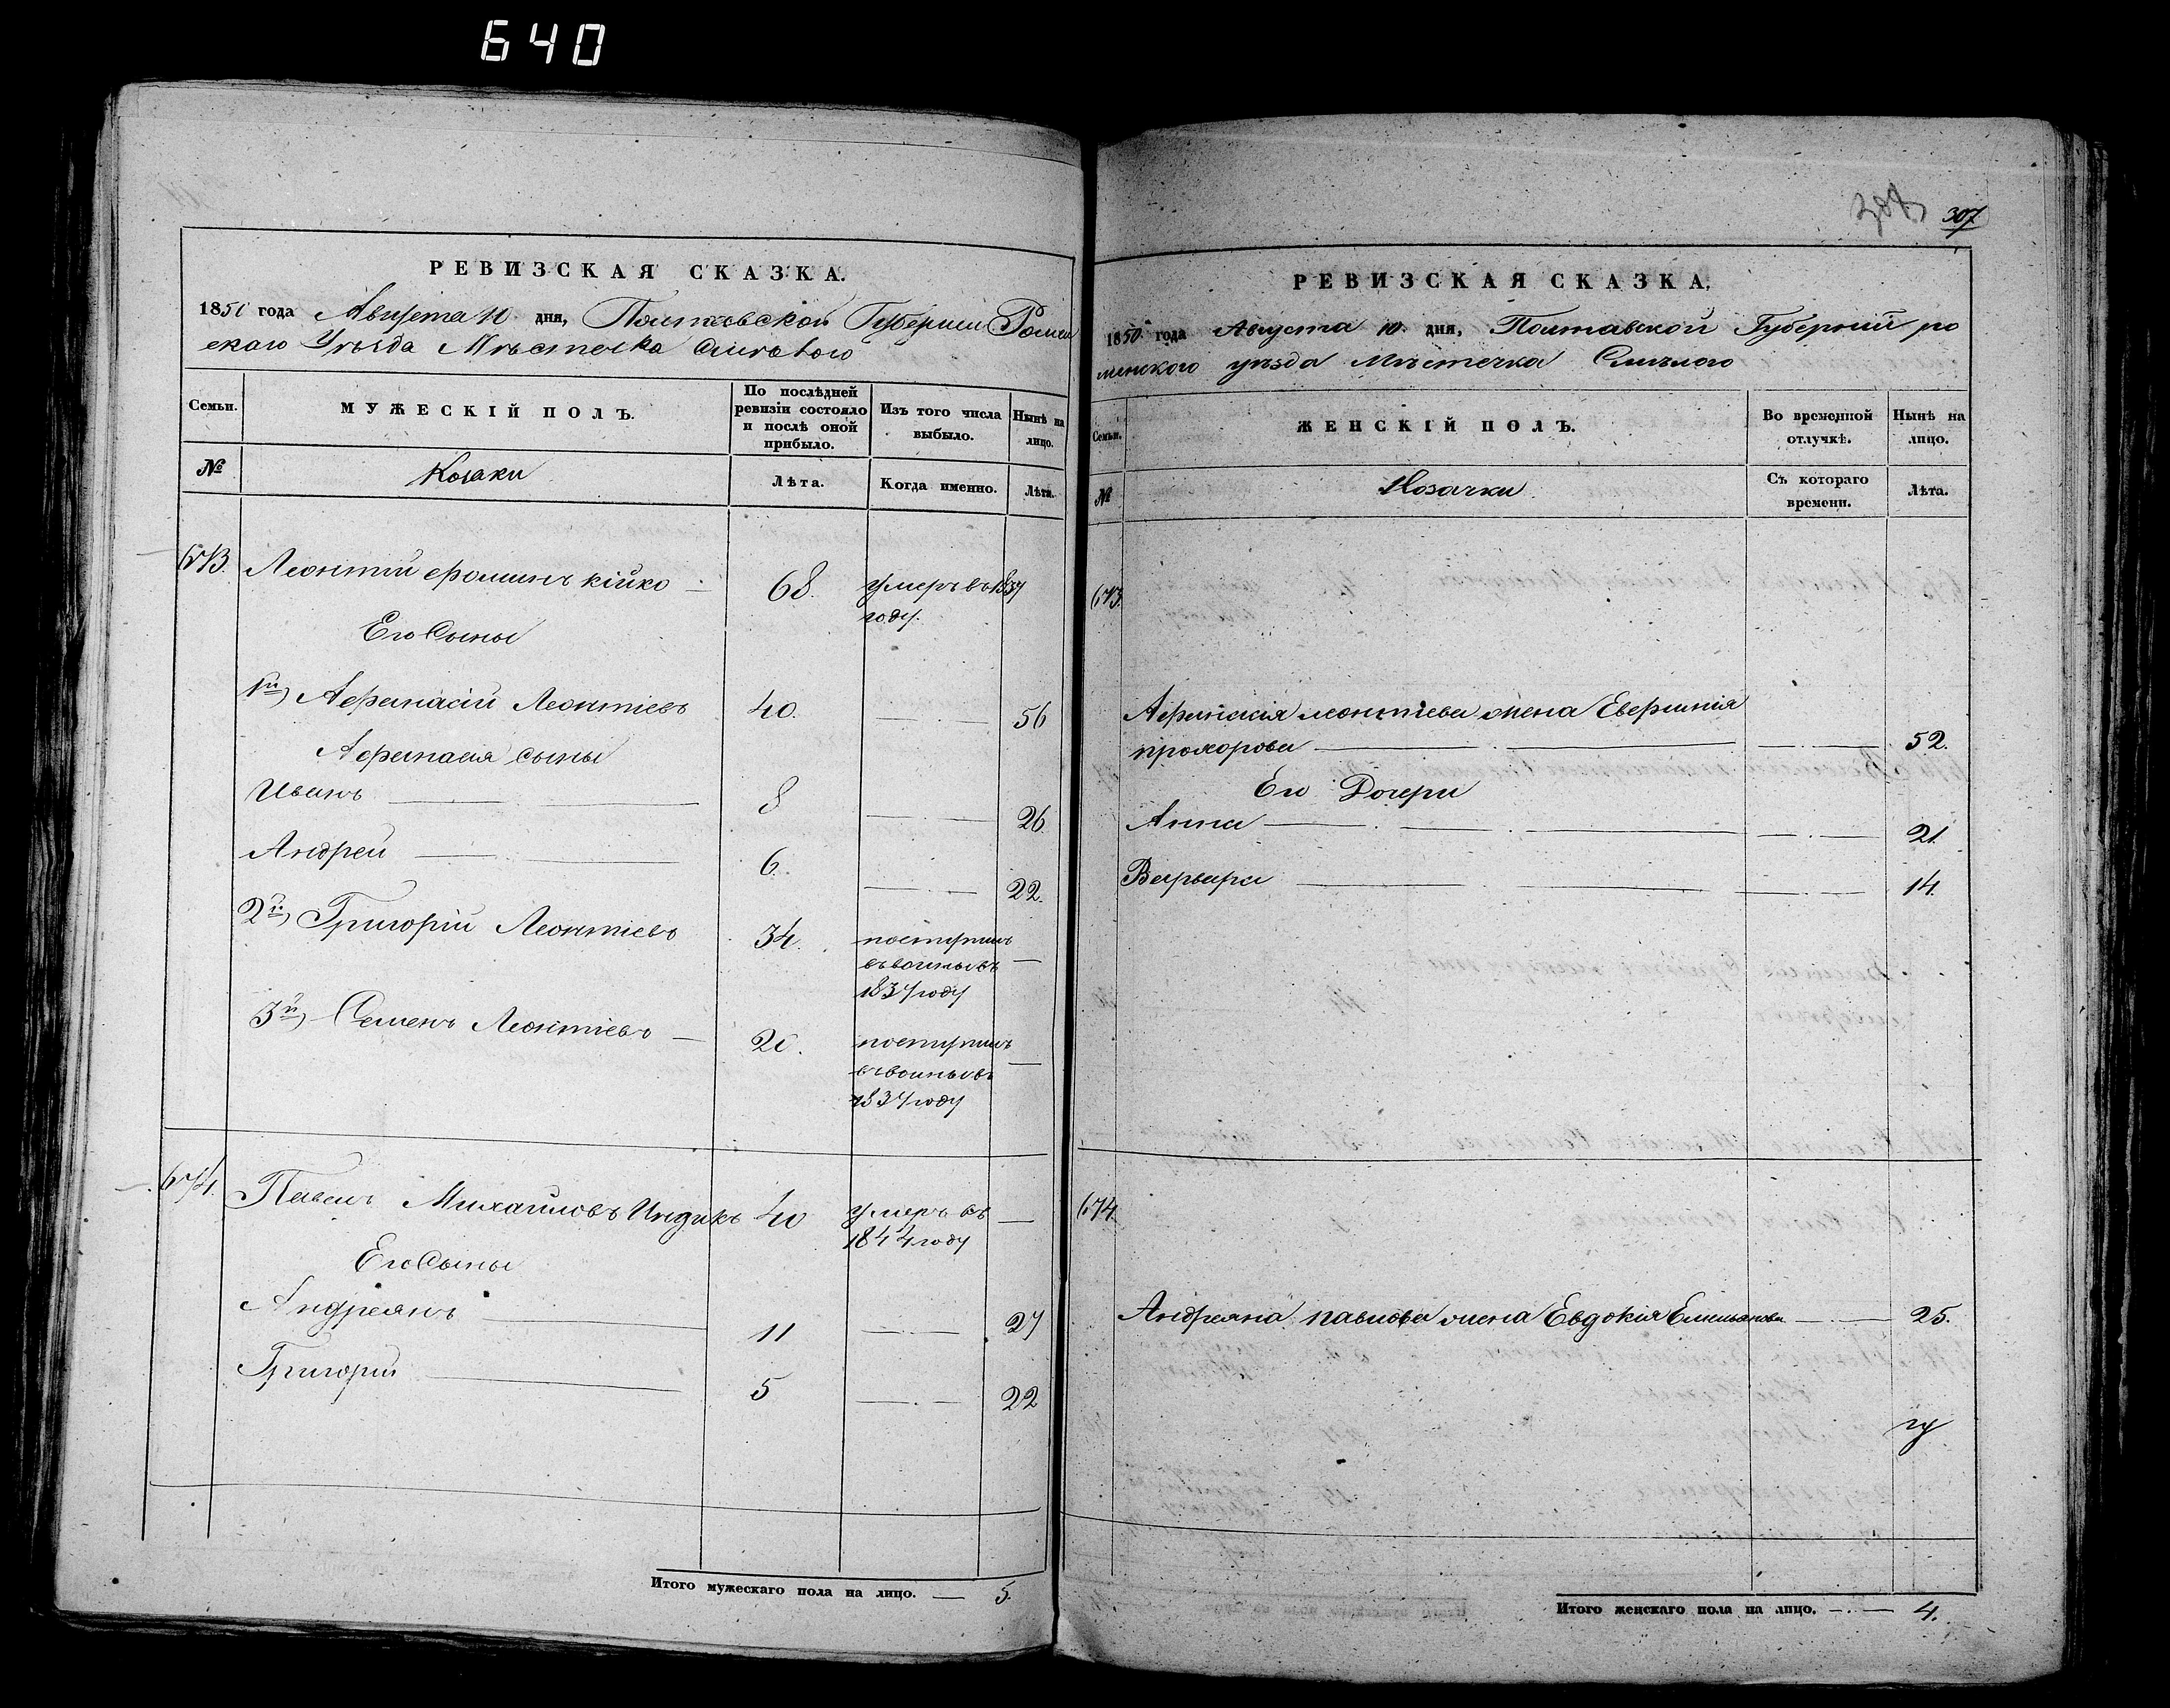 640
РЕВИЗСКАЯ СКАЗКА.
1850 года Августа 10 дня, Полтавской Губернии Ромен
скаго Уѣзда Мѣстечка Смѣлого
Семьи.
МУЖЕСКІЙ ПОЛЪ.
По послѣдней ревизіи состояло и послѣ оной прибыло.
Изъ того числа выбыло.
Нынѣ на лицо.
№
Козаки
Лѣта.
Когда именно.
Лѣта.
673. Леонтій Фоминъ Кійко 68. умеръ въ 1837
году.
Его Сыны
1й) Афанасій Леонтіевъ 40. 56
Афанасия сыны
Иванъ 8 26
Андрей 6. 22.
2й) Григорій Леонтіевъ 34. поступилъ
въ воины въ
1837 году
3й) Семенъ Леонтіевъ 20. поступилъ
въ воины въ
1837 году
674. Павелъ Михайловъ Индикъ 40 умеръ въ
1844 году
Его Сыны
Андреянъ 11 27
Григорій 5 22
Итого мужескаго пола на лицо. 5.
307
РЕВИЗСКАЯ СКАЗКА.
1850 года Августа 10 дня, Полтавской Губерній ро
менского уѣзда Мѣстечка Смѣлого
Семьи.
ЖЕНСКІЙ ПОЛЪ.
Во временной отлучкѣ.
Нынѣ на лицо.
№
Козачки
Съ котораго времени.
Лѣта.
673.
Афанасія леонтіева жена Евфимія
прохорова 52.
Его Дочери
Анна 21.
Варвара 14.
674.
Андреяна павлова жена Евдокія Емельянова 25.
Итого женскаго пола на лицо. 4.